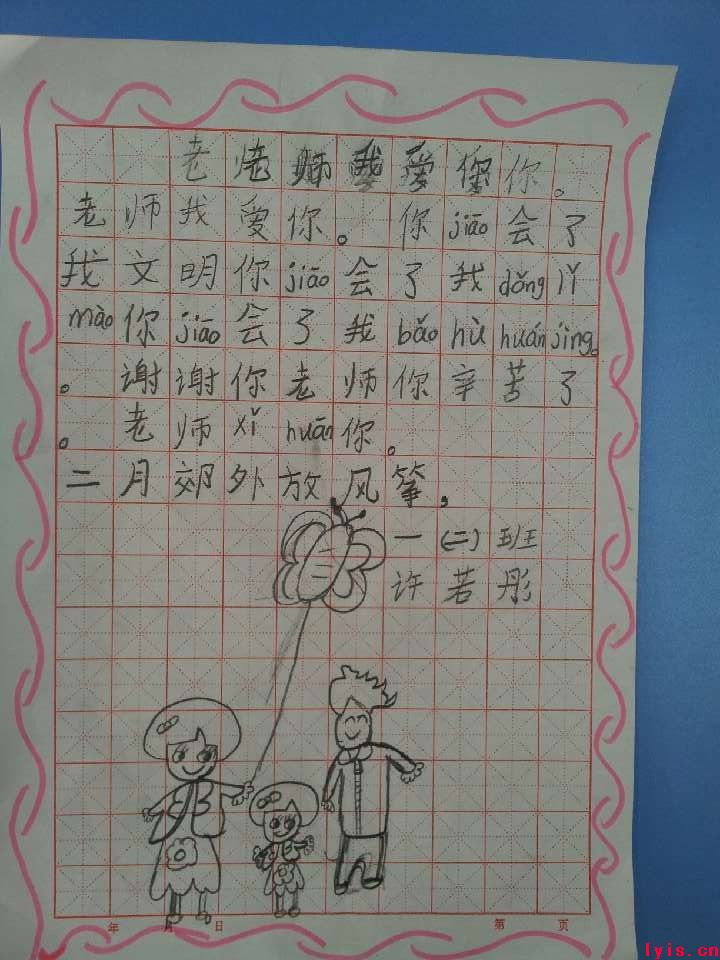 老佬师我爱你你。
老师我爱你。你jiāo会了
我文明你jiāo会了我dǒng lǐ
mào你jiāo会了我bǎo hù huán jìng。
。谢谢你老师你辛苦了
。老师xǐ huān你。
二月郊外放风筝,
一(二)班
许若彤
年 月 日 第 页
lyis.cn